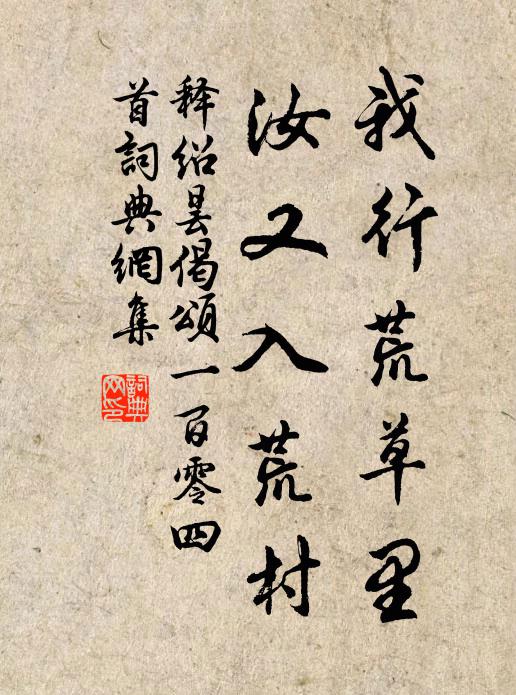 我行荒草里
汝又入荒村
释绍昙偈颂一百零四
首詞典網集
詞典网印